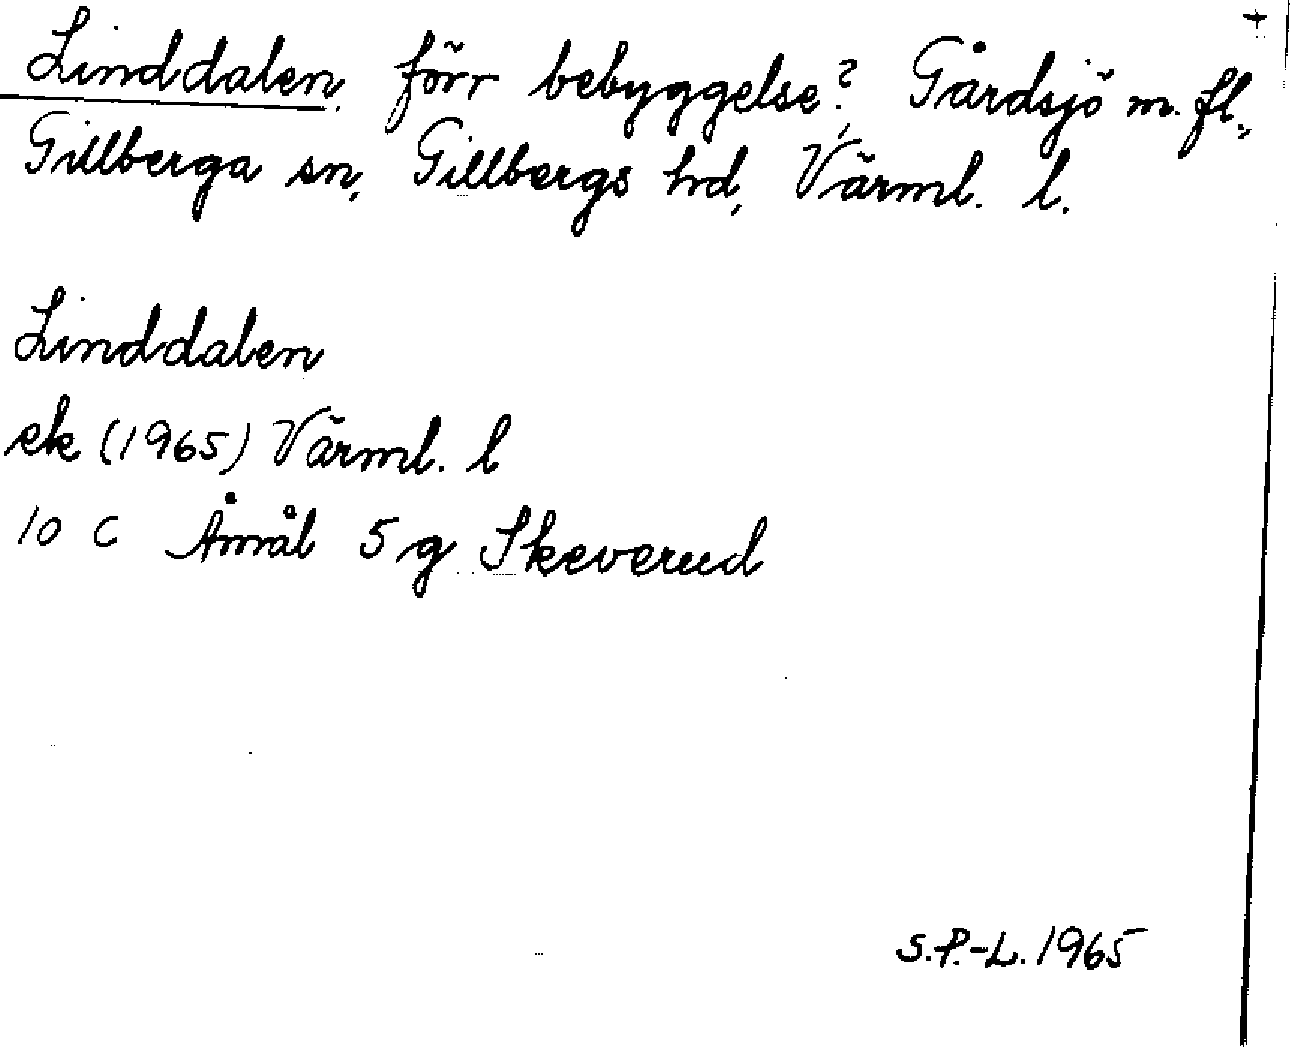 +
Linddalen, förr bebyggelse? Gårdsjö m. fl.,
Gillberga sn, Gillbergs hd, Värml. l.
Linddalen
ek (1965) Värml. l
10 C Åmål 5 g Skeverud
S.P.-L. 1965